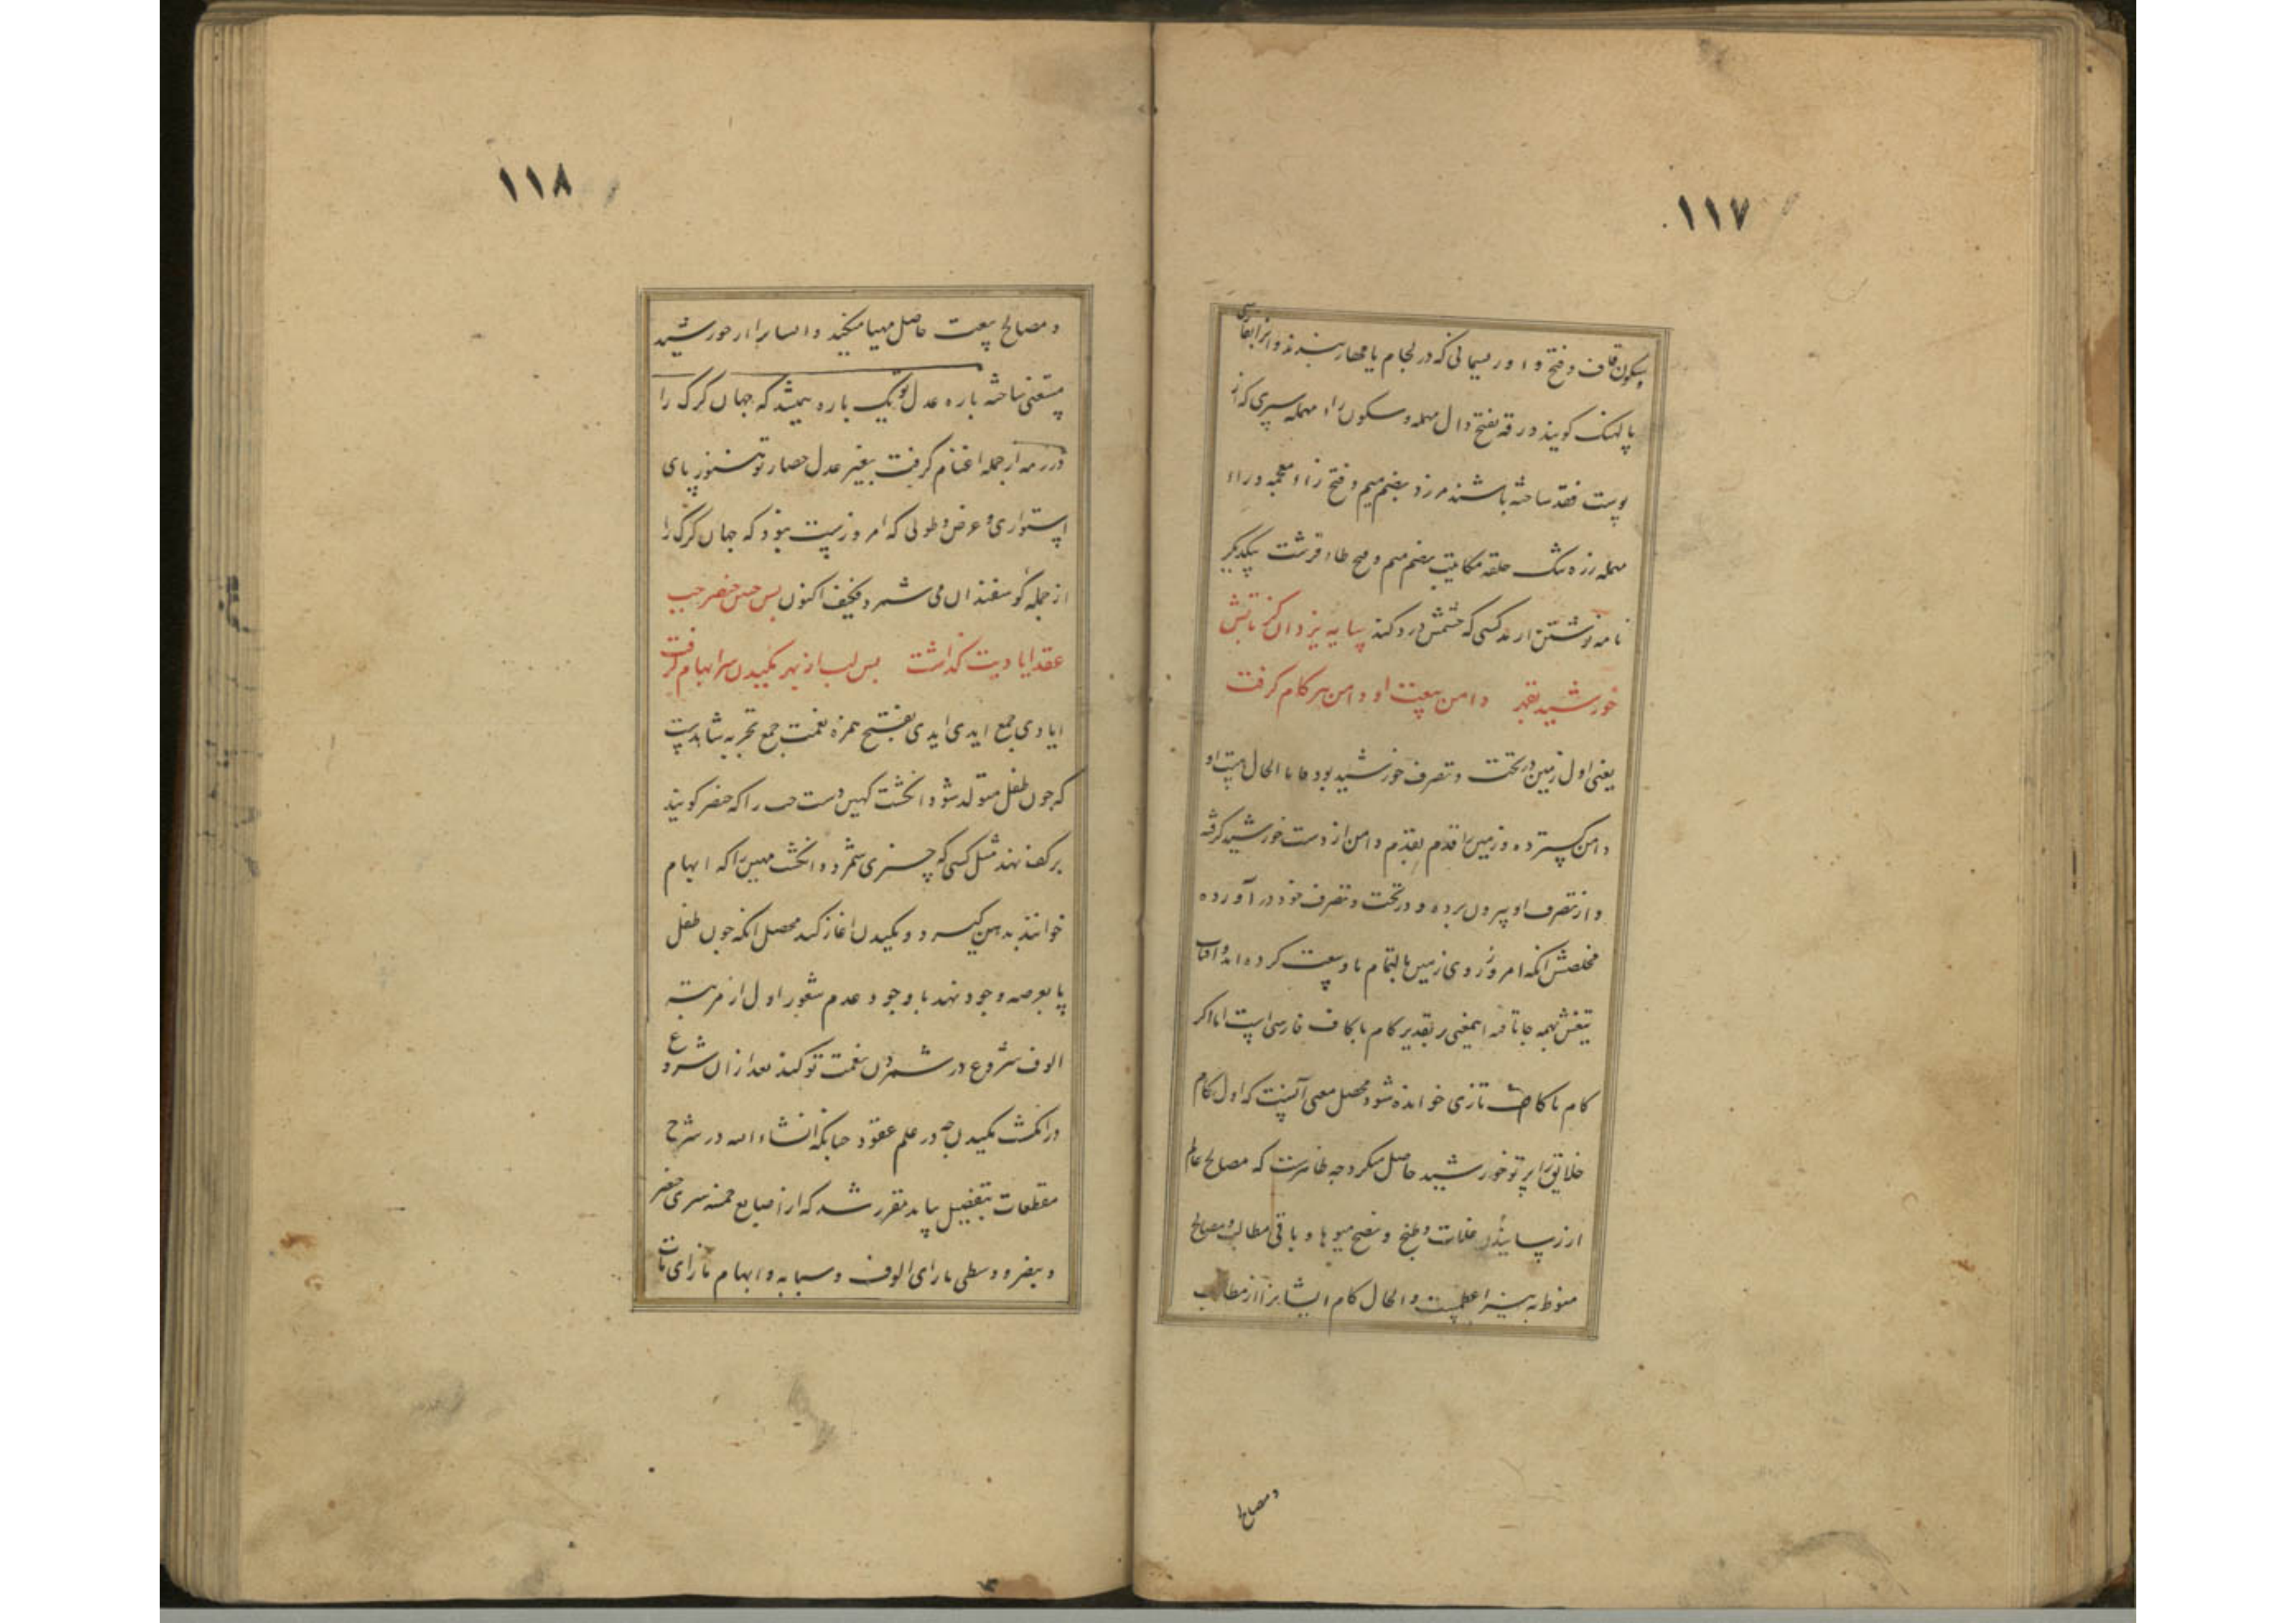 ۱۱۷
بسکون قاف و فتح واو ریسمانی که در لجام یا مهار بندند و انرا بفارسی
پالهنک کویند درقه بفتح دال مهمله و سکون راء مهمله سپری که از
پوست فقد ساخته باشند مزرد بضم میم و فتح زاء معجمه و راء
مهمله زره تنک حلقه مکاتبت بضم میم و فتح طاء قرشت بیکدیگر
نامه نوشتن ارمد کسی که چشمش درد کند سایه یزدان کز تابش
خورشید بقهر دامن بیعت او دامن هر کام گرفت
یعنی اول زمین در تحت و تصرف خورشید بود فاما الحال بیعت او
دامن کسترده و زمین را قدم بقدم دامن از دست خورشید گرفته
و از تصرف او بیرون برده و در تحت و تصرف خود در آورده
مخلصش انکه امروز روی زمین بالتمام با و بیعت کرده اند و آفتاب
تیغش بهمه جا تافته اینمعنی بر تقدیر کام با کاف فارسی است اما اگر
کام با کاف تازی خوانده شود محصل معنی آنست که اول کام
خلایق را پرتو خورشید حاصل میکرد چه ظاهرست که مصالح عالم
از رسانیدن غلات و طبخ و نضج میوها و باقی مطالب و مصالح
منوط به نیر اعظمست و الحال کام ایشانرا از مطالب
و مصالح
۱۱۸
و مصالح بیعت حاصل مهیا میکند و ایشانرا از خورشید
مستغنی ساخته باره عدل تو یک باره بیمشد که جهان کرک را
در رمه از جمله اغنام گرفت بغیر عدل حصار تو هنوز پای
استواری و عرض و طولی که امروز هست نبود که جهان کرک را
از جمله گوسفندان می شمرد فکیف اکنون بس حس خنصر چپ
عقد ایادیت گذاشت بس لب از بهر مکیدن سر ابهام گرفت
ایادی جمع ایدی ایدی بفتح همزه نعمت جمع تجربه شاهدست
که چون طفل متولد شود انگشت کهین دست چپ را که خنصر کویند
بر کف نهد مثل کسی که چیزی شمرد و انگشت مهین را که ابهام
خوانند بدهن گیرد و مکیدن اغاز کند محصل انکه چون طفل
پا بعرصه وجود نهد با وجود عدم شعور اول از مرتبه
الوف شروع در شمردن نعمت تو کند بعد از ان شروع
در انگشت مکیدن چه در علم عقود چنانکه انشاء الله در شرح
مقطعات بتفضیل بیاید مقرر شد که از اصابع خمسه یسری خنصر
و بنصر و وسطی بازای الوف و سبابه و ابهام بازای مآت